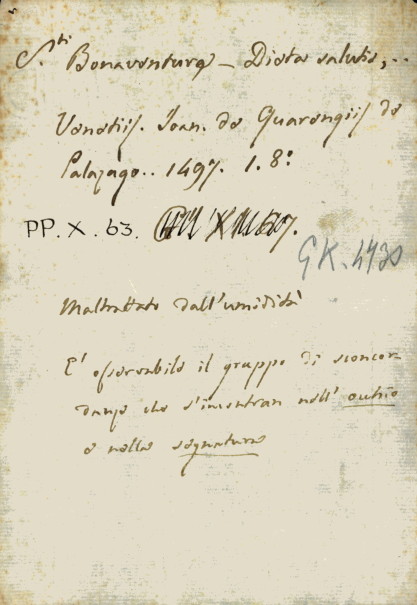 S.ti Bonaventurę – Dieta salutis, ..
Venetiis. Joan. de Quarengiis de
Palazago.. 1497. 1. 8:
PP. X. 63.
GK. 4730
Maltrattato dall'umidità
E' osservabile il gruppo di sconcor-
danze che s'incontran nell'
e nella segnatura